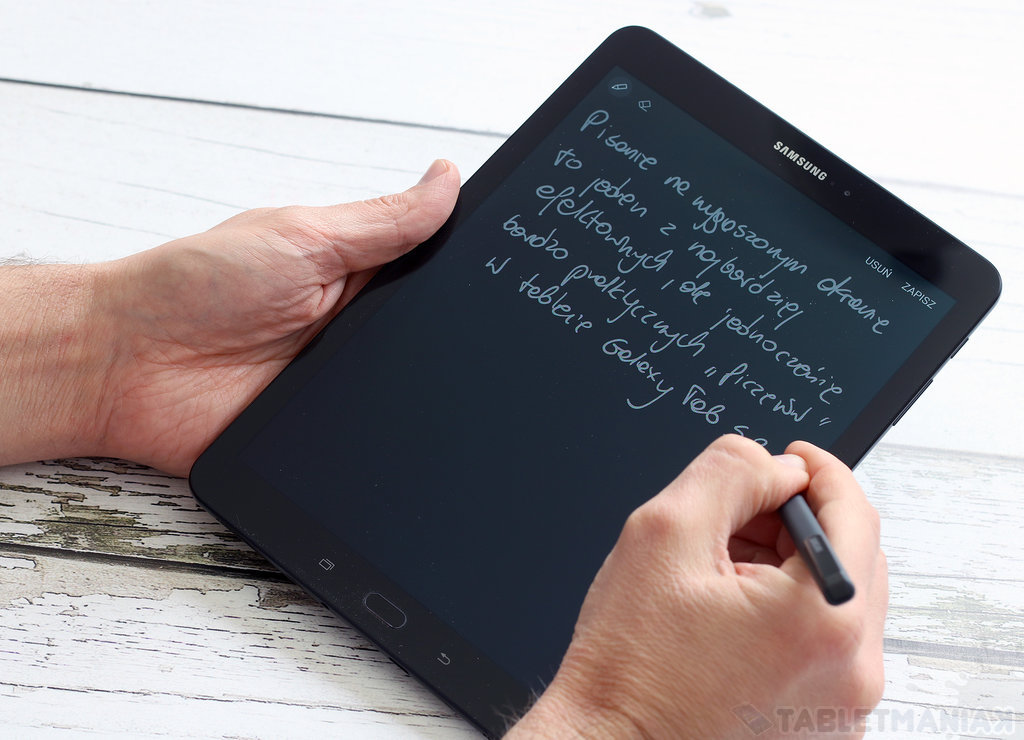 SAMSUNG
USUŃ ZAPISZ
Pisanie na wygaszonym ekranie
to jeden z najbardziej
efektownych, ale jednocześnie
bardzo praktycznych "ficzerów"
w tablecie Galaxy Tab S
TABLETMANIAK